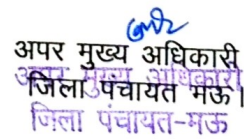 अपर मुख्य अधिकारी
जिला पंचायत मऊ।
अपर मुख्य अधिकारी
जिला पंचायत-मऊ